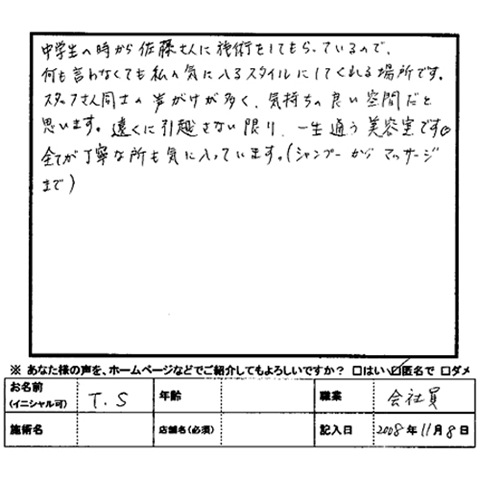 中学生の時から佐藤さんに施術をしてもらっているので、
何も言わなくても私の気に入るスタイルにしてくれる場所です。
スタッフさん同士の声がけが多く、気持ちの良い空間だと
思います。遠くに引越さない限り、一生通う美容室です。
全てが丁寧な所も気に入っています。(シャンプーからマッサージ
まで)
※ あなた様の声を、ホームページなどでご紹介してもよろしいですか? □はい ☑匿名で □ダメ
お名前 (イニシャル可) T.S 年齢 職業 会社員
施術名 店舗名(必須) 記入日 2008年11月8日